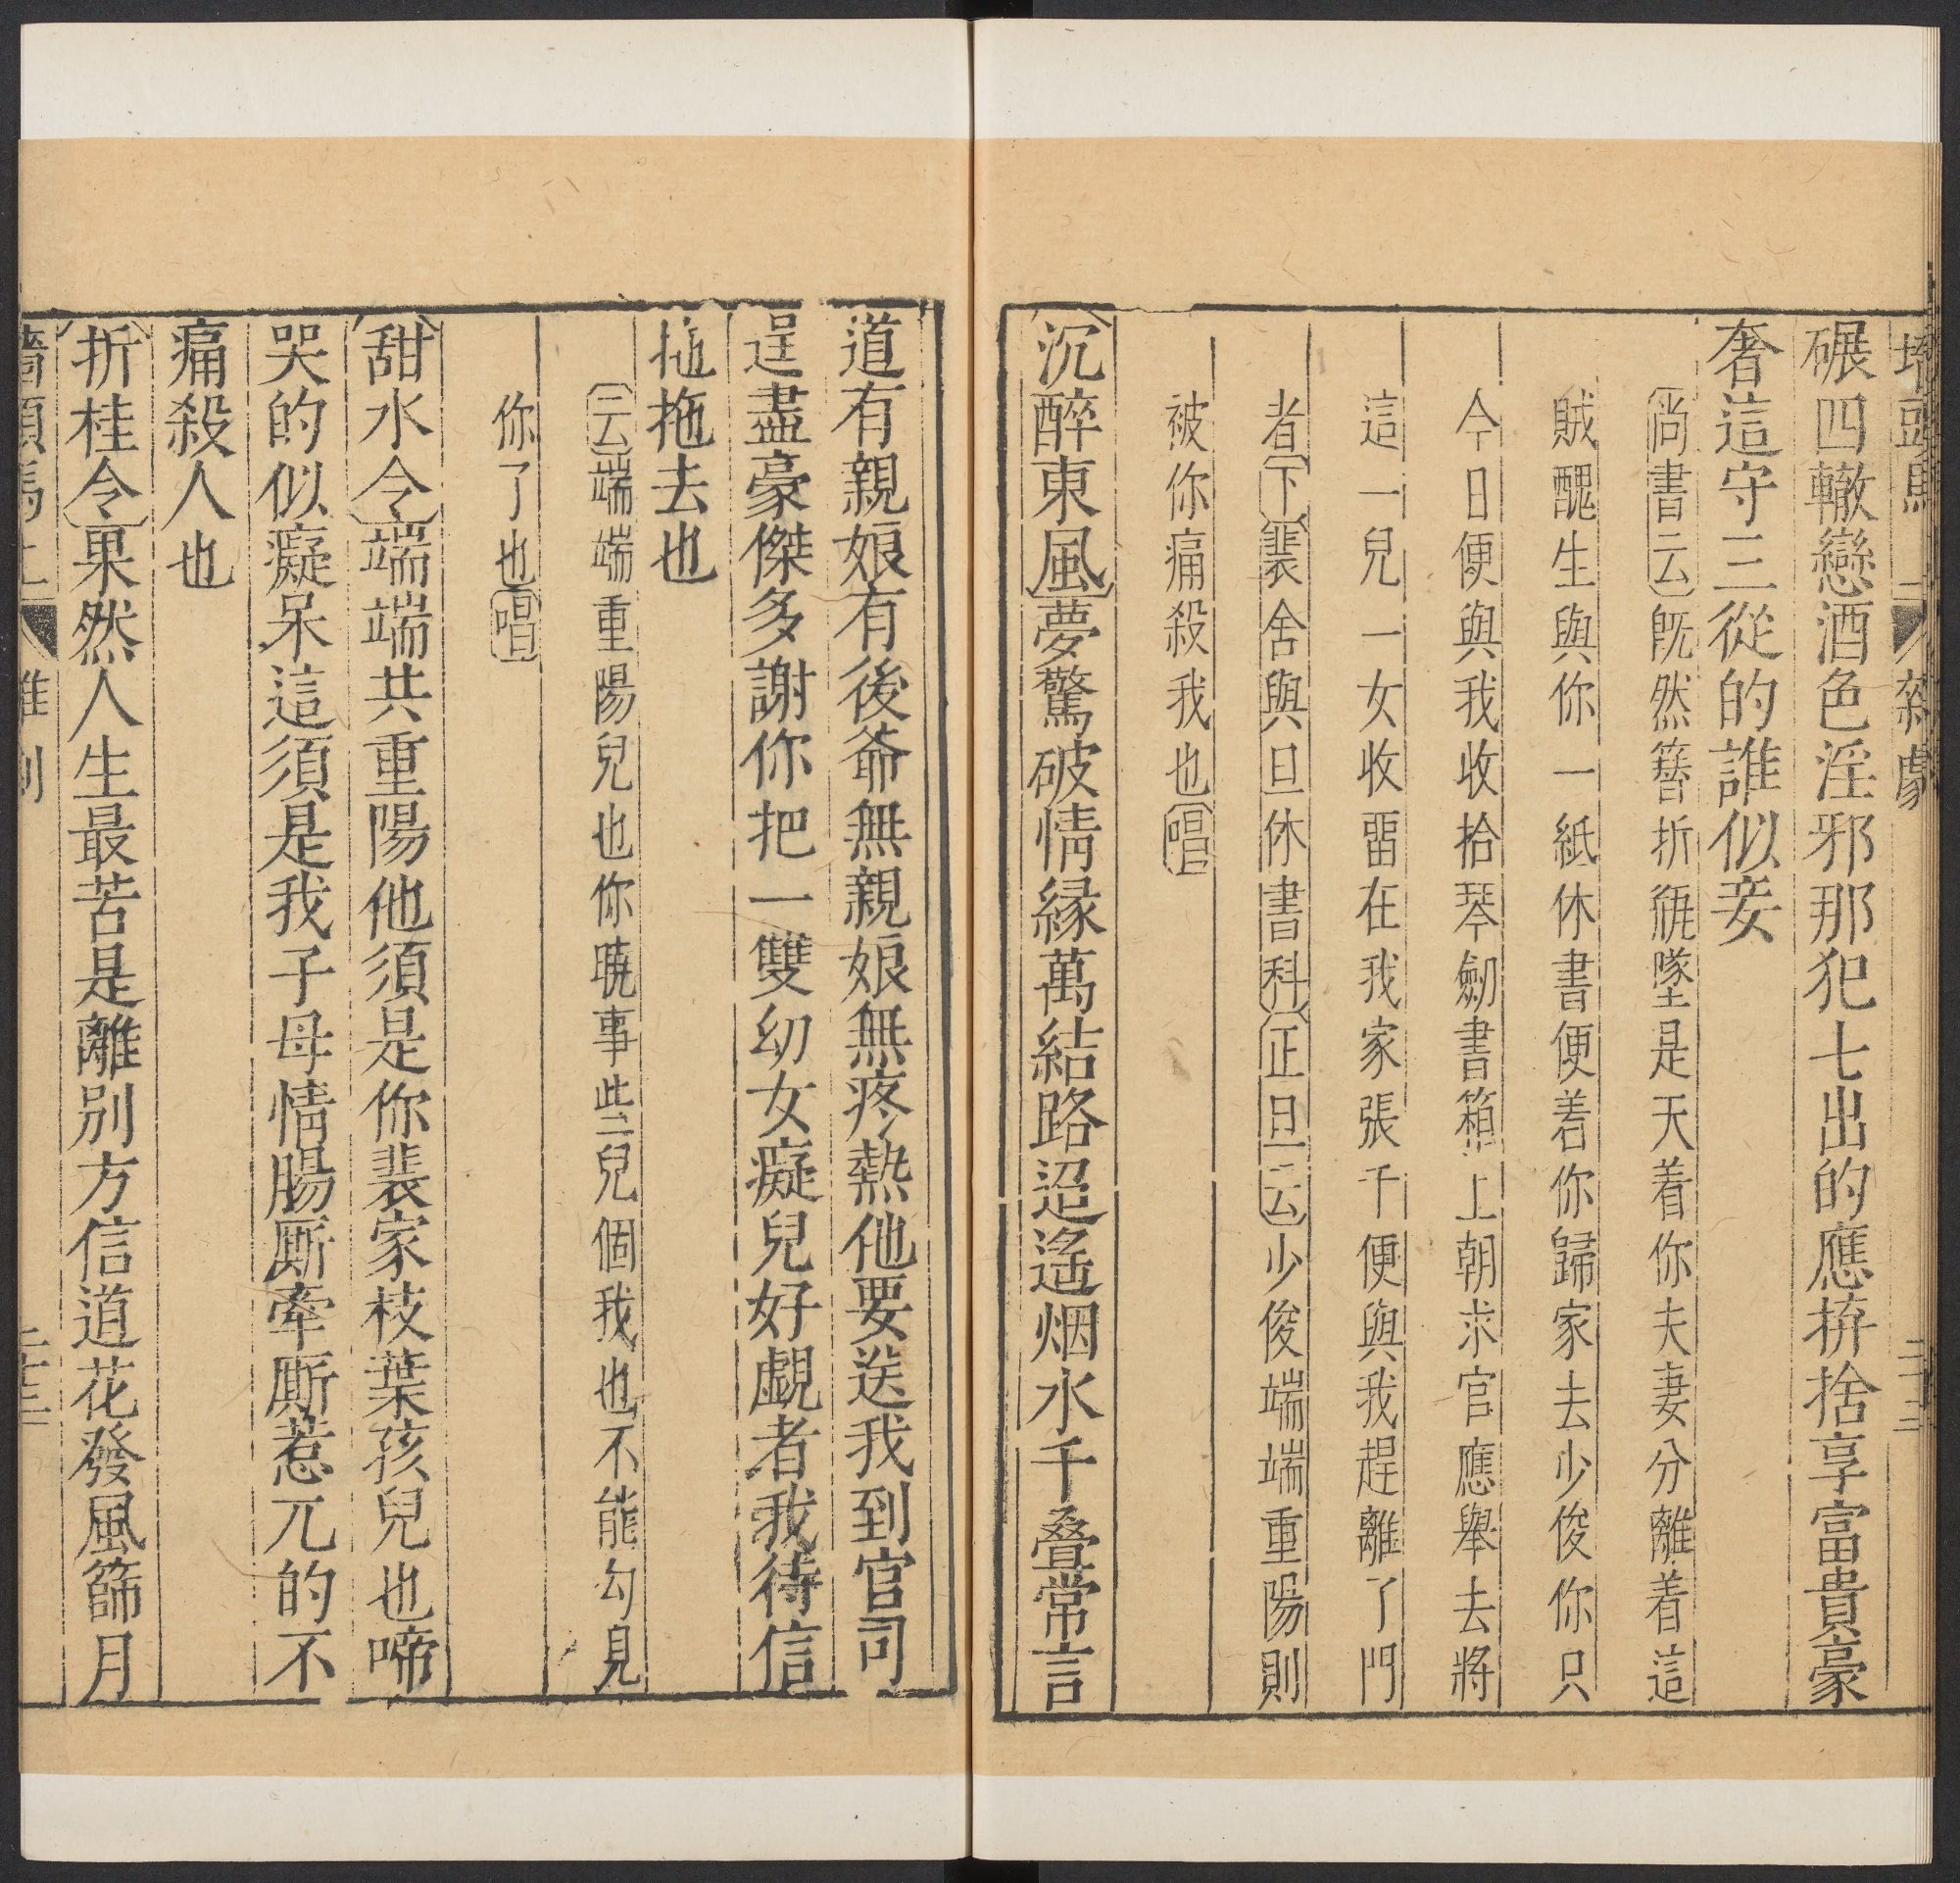 墻頭馬上 雜劇 二十二
碾四轍戀酒色淫邪那犯七出的應拚捨享富貴豪
奢這守三從的誰似妾
尚書云旣然簪折甁墜是天着你夫妻分離着這
賊醜生與你一紙休書便着你歸家去少俊你只
今日便與我收拾琴劒書箱上朝求官應舉去將
這一兒一女收畱在我家張千便與我趕離了門
者下裴舍與旦休書科正旦云少俊端端重陽則
被你痛殺我也唱
沉醉東風夢驚破情緣萬結路迢遙烟水千叠常言
道有親娘有後爺無親娘無疼熱他要送我到官司
逞盡豪傑多謝你把一雙幼女癡兒好覷者我待信
拖拖去也
云端端重陽兒也你曉事些兒個我也不能勾見
你了也唱
甜水令端端共重陽他須是你裴家枝葉孩兒也啼
哭的似癡呆這須是我子母情腸厮牽厮惹兀的不
痛殺人也
折桂令果然人生最苦是離別方信道花發風篩月
墻頭馬上 雜劇 二十三